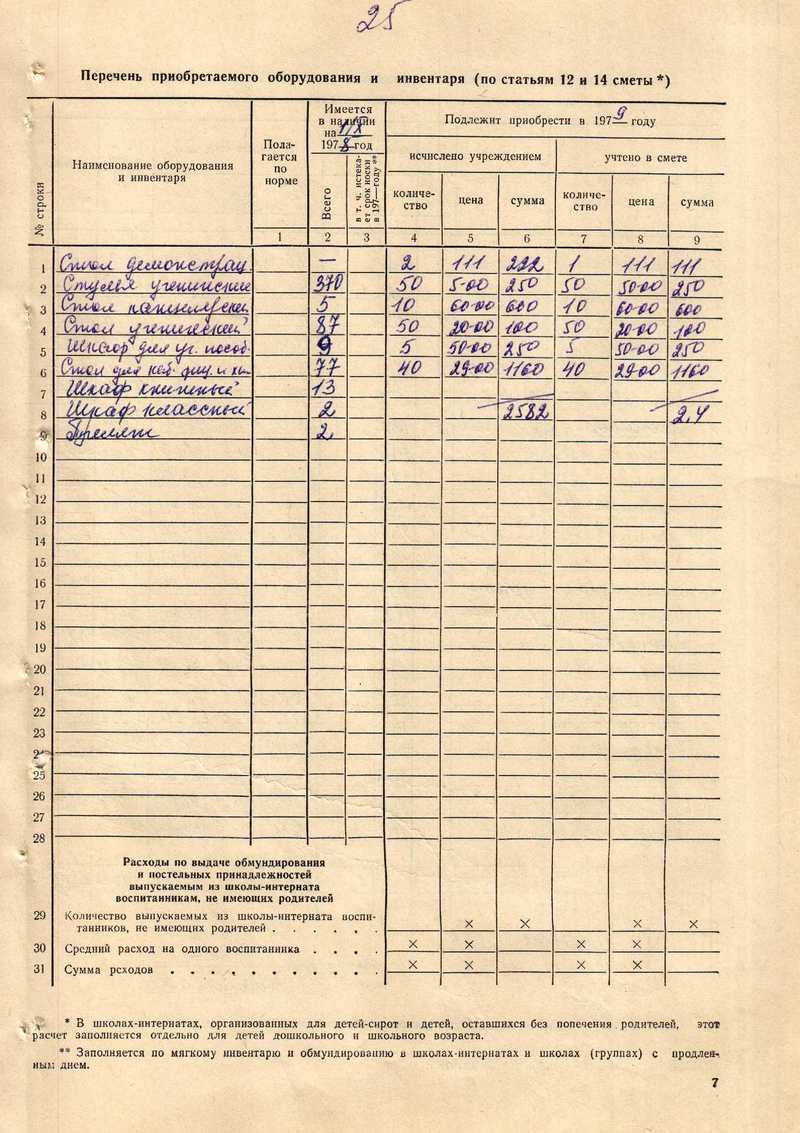 25
Перечень приобретаемого оборудования и инвентаря (по статьям 12 и 14 сметы *)
№ строки
Наименование оборудования
и инвентаря
Пола-
гается
по
норме
Имеется
в наличии
на 1/X
1978 год
Всего
в т. ч. истека-
ет срок носки
в 197— году **
Подлежит приобрести в 1979 году
исчислено учреждением
учтено в смете
количе-
ство
цена
сумма
количе-
ство
цена
сумма
1 2 3 4 5 6 7 8 9
1 Стол демонстрац. — 2 111 222 1 111 111
2 Стулья ученические 370 50 5-00 250 50 50-00 250
3 Стол 5 10 60-00 600 10 60-00 600
4 Стол ученический 87 50 20-00 100 50 20-00 100
5 для уч. пособ. 9 5 50-00 250 5 50-00 250
6 Стол для каб. физ. и хи- 77 40 29-00 1160 40 29-00 1160
7 Шкаф книжный 13
8 Шкаф классный 2 2582 2,4
9 2
10
11
12
13
14
15
16
17
18
19
20
21
22
23
2
25
26
27
28
Расходы по выдаче обмундирования
и постельных принадлежностей
выпускаемым из школы-интерната
воспитанникам, не имеющих родителей
29 Количество выпускаемых из школы-интерната воспи-
танников, не имеющих родителей . . . . . . × × × ×
30 Средний расход на одного воспитанника . . . . × × × ×
31 Сумма рсходов . . . . . . . . . . × × × ×
* В школах-интернатах, организованных для детей-сирот и детей, оставшихся без попечения родителей, этот
расчет заполняется отдельно для детей дошкольного и школьного возраста.
** Заполняется по мягкому инвентарю и обмундированию в школах-интернатах и школах (группах) с продлен-
ным днем.
7